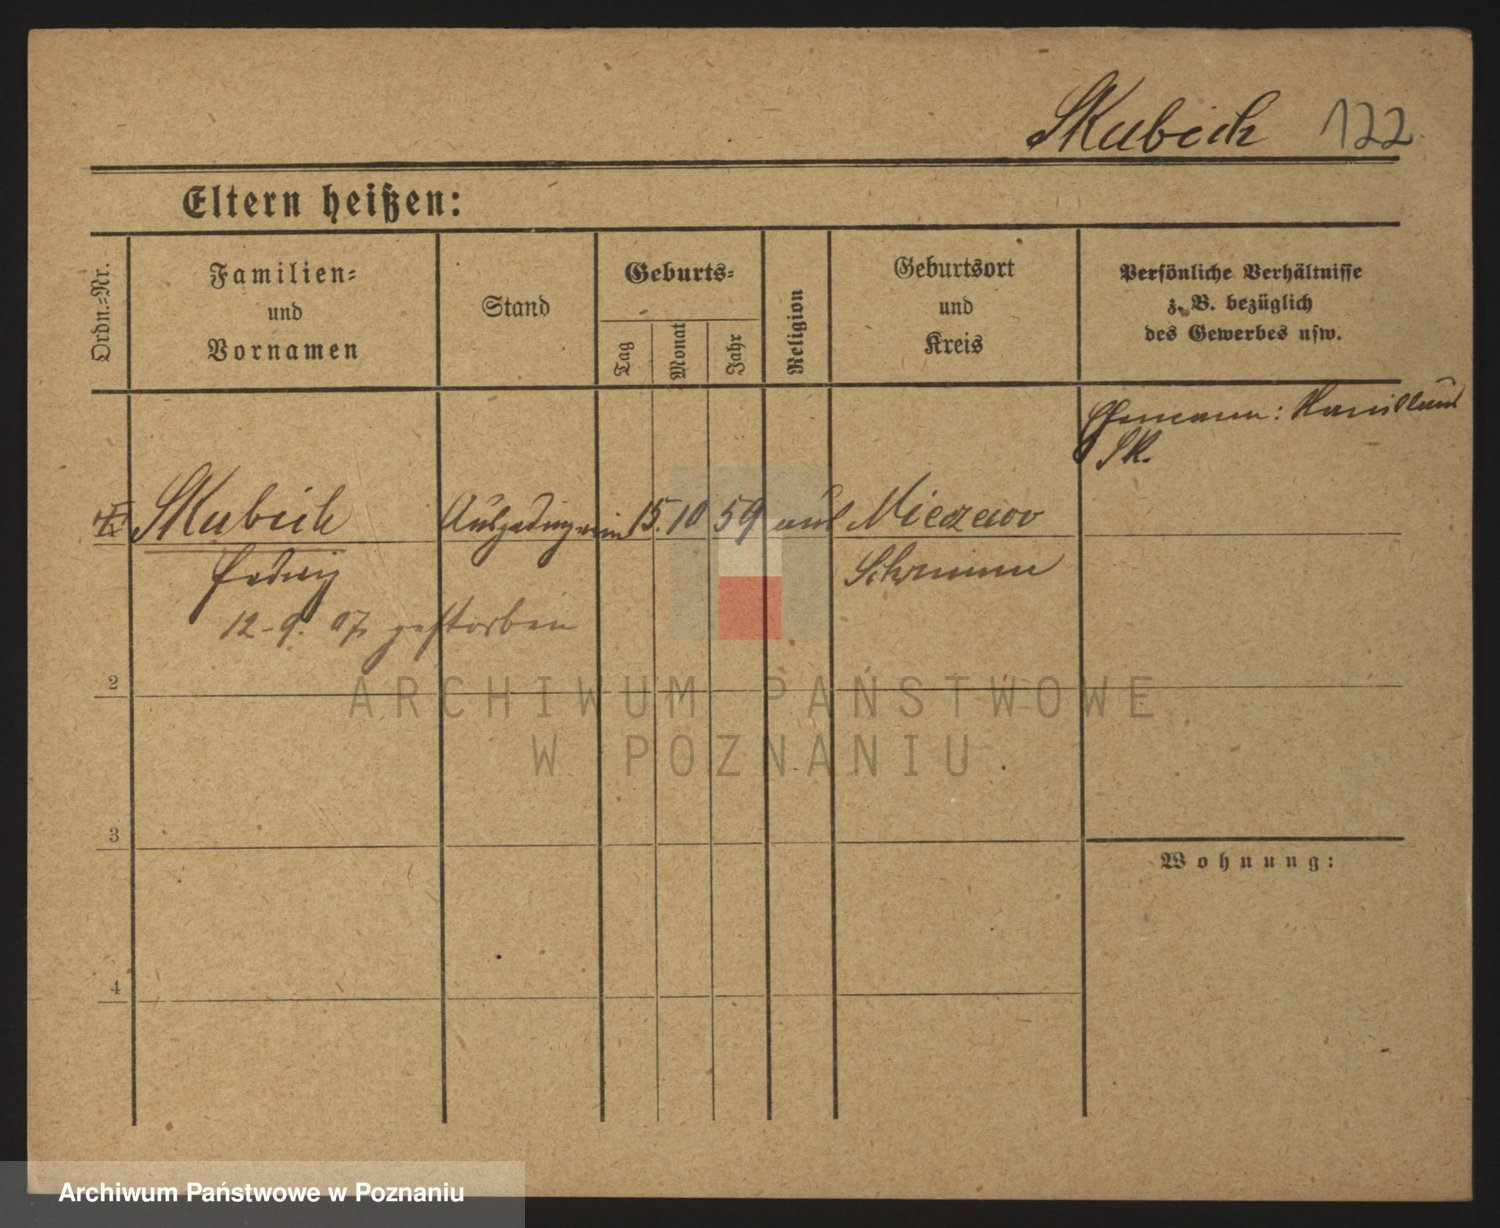 Skubich 122
Eltern heißen:
Ordn.-Nr.
Familien-
und
Vornamen
Stand
Geburts-
Tag
Monat
Jahr
Religion
Geburtsort
und
Kreis
Persönliche Verhältnisse
z. B. bezüglich
des Gewerbes usw.
Ehemann:
Sk.
Skubich 15. 10 59
Schrimm
12. 9. 07 gestorben
2
ARCHIWUM PAŃSTWOWE
W POZNANIU
3
Wohnung:
4
Archiwum Państwowe w Poznaniu